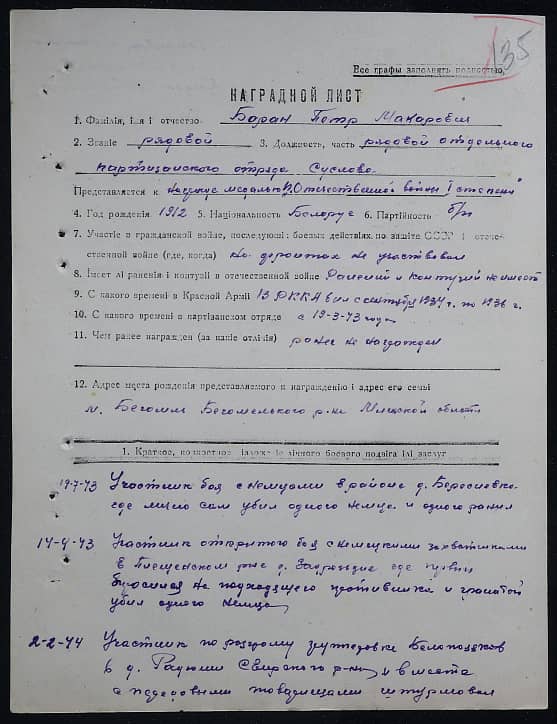 135
Все графы заполнять полностью.
НАГРАДНОЙ ЛИСТ
1. Фамілія, імя і отчество Баран Петр Макарович
2. Званіе рядовой 3. Должность, часть рядовой отдельного
партизанского отряда Суслова
Представляется к медалью Отечественной войны I степени
4. Год рожденія 1912 5. Національность Белорус 6. Партійность б/п
7. Участіе в гражданской войне, последующіх боевых действіях по защіте СССР і отече-
ственной войне (где, когда) не участвовал
8. Імеет лі раненія і контузіі в отечественной войне Ранений и контузий не имеет
9. С какого временi в Красной Арміі В РККА был с сентября 1934 г. по 1936 г.
10. С какого временi в партізанском отряде с 19-3-43 года
11. Чем ранее награжден (за какіе отлічія) ранее не награжден
12. Адрес места рожденія представляемого к награжденію і адрес его семьі
м. Бегомль Бегомльского р-на Минской области
1. Краткое, конкретное ізложеніе лічного боевого подвіга ілі заслуг
19-7-43 Участник боя с немцами в районе д.
где лично сам убил одного немца и одного ранил
14-9-43 Участник открытого боя с немецкими захватчиками
в Плещенском р-не д. где первым
бросился на подходящего противника и гранатой
убил одного немца
2-2-44 Участник по разгрому группировки Белополяков
в д. Радюши Свирского р-на и вместе
с передовыми товарищами штурмовал